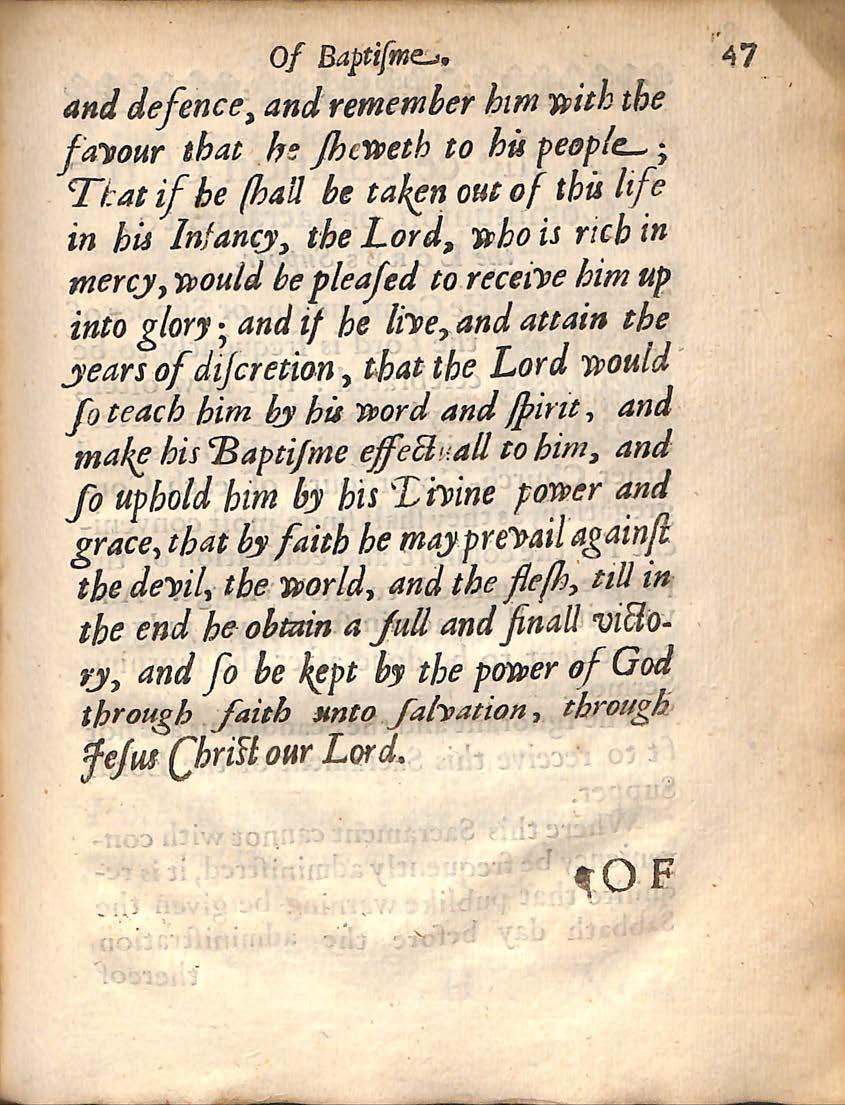 Of Baptiſme. 47
and defence, and remember him with the
favour that he ſheweth to his people ;
That if he ſhall be taken out of this life
in his Infancy, the Lord, who is rich in
mercy, would be pleaſed to receive him up
into glory ; and if he live, and attain the
years of diſcretion, that the Lord would
ſo teach him by his word and ſpirit, and
make his Baptiſme effectuall to him, and
ſo uphold him by his Divine power and
grace, that by faith he may prevail againſt
the devil, the world, and the fleſh, till in
the end he obtain a full and finall victo-
ry, and ſo be kept by the power of God
through faith unto ſalvation, through
Jeſus Chriſt our Lord.
¶OF